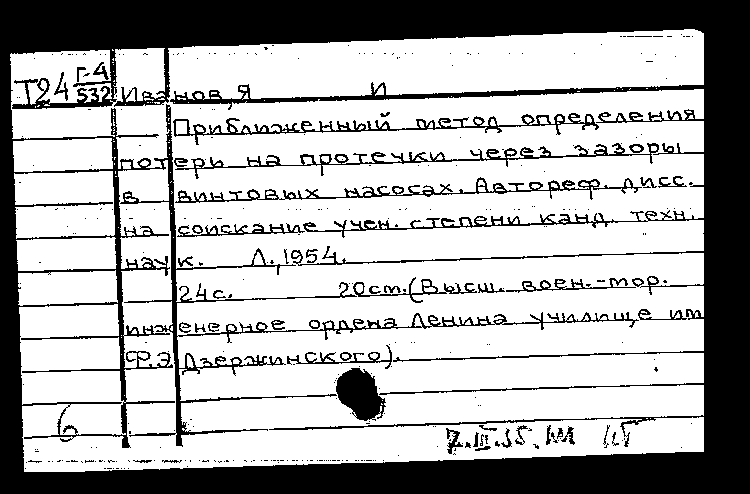 Т24 Г-4/532 Иванов, Я И
Приближенный метод определения
потерь на протечки через зазоры
в винтовых насосах. Автореф. дисс.
на соискание учен. степени канд. техн.
наук. Л., 1954.
24с. 20см. (Высш. воен.-мор.
инженерное ордена Ленина училище им
Ф.Э. Дзержинского).
6